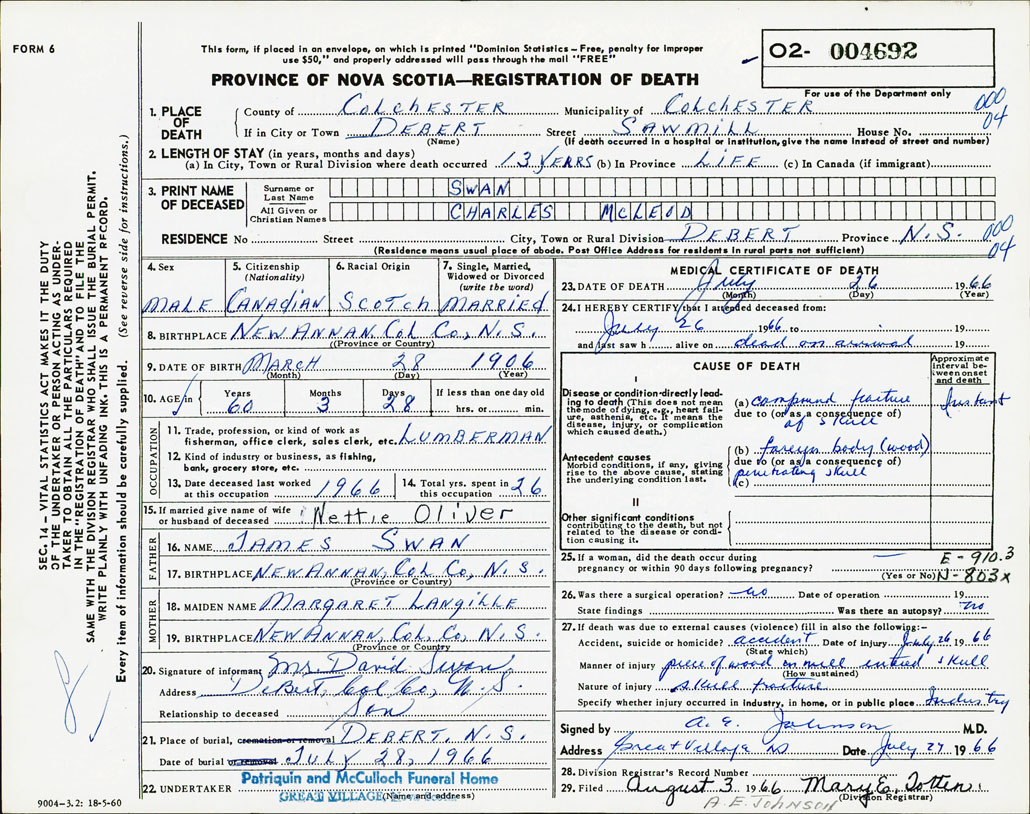 FORM 6
This form, if placed in an envelope, on which is printed "Dominion Statistics – Free, penalty for improper
use $50," and properly addressed will pass through the mail "FREE"
PROVINCE OF NOVA SCOTIA—REGISTRATION OF DEATH
O2- 004692
For use of the Department only
000
04
1. PLACE OF DEATH
County of COLCHESTER Municipality of COLCHESTER
If in City or Town DEBERT Street SAWMILL House No.
(Name) (If death occurred in a hospital or institution, give the name instead of street and number)
2. LENGTH OF STAY (in years, months and days)
(a) In City, Town or Rural Division where death occurred 13 YEARS (b) In Province LIFE (c) In Canada (if immigrant)
3. PRINT NAME OF DECEASED
Surname or Last Name SWAN
All Given or Christian Names CHARLES MCLEOD
RESIDENCE No Street City, Town or Rural Division DEBERT Province N.S.
000
04
(Residence means usual place of abode. Post Office Address for residents in rural parts not sufficient)
4. Sex
MALE
5. Citizenship (Nationality)
CANADIAN
6. Racial Origin
SCOTCH
7. Single, Married, Widowed or Divorced (write the word)
MARRIED
8. BIRTHPLACE NEW ANNAN, Col Co, N.S.
(Province or Country)
9. DATE OF BIRTH MARCH 28 1906
(Month) (Day) (Year)
10. AGE in Years Months Days If less than one day old
60 3 28 hrs. or min.
OCCUPATION
11. Trade, profession, or kind of work as
fisherman, office clerk, sales clerk, etc. LUMBERMAN
12. Kind of industry or business, as fishing,
bank, grocery store, etc.
13. Date deceased last worked
at this occupation 1966
14. Total yrs. spent in
this occupation 26
15. If married give name of wife
or husband of deceased Nettie Oliver
FATHER
16. NAME JAMES SWAN
17. BIRTHPLACE NEW ANNAN, Col Co, N.S.
(Province or Country)
MOTHER
18. MAIDEN NAME MARGARET LANGILLE
19. BIRTHPLACE NEW ANNAN, Col. Co, N.S.
(Province or Country)
20. Signature of informant Mr. David Swan,
Address DeBert, Col Co, N.S.
Relationship to deceased Son
21. Place of burial, cremation or removal DEBERT, N.S.
Date of burial or removal JULY 28, 1966
Patriquin and McCulloch Funeral Home
22. UNDERTAKER GREAT VILLAGE
(Name and address)
9004–3, 2: 18-5-60
MEDICAL CERTIFICATE OF DEATH
23. DATE OF DEATH July 26 1966
(Month) (Day) (Year)
24. I HEREBY CERTIFY that I attended deceased from:
July 26 1966 to 19
and last saw h alive on dead on arrival 19
CAUSE OF DEATH
Approximate interval between onset and death
I
Disease or condition directly leading to death (This does not mean the mode of dying, e.g., heart failure, asthenia, etc. It means the disease, injury, or complication which caused death.)
(a) compound fracture Instant
due to (or as a consequence of)
of skull
Antecedent causes
Morbid conditions, if any, giving rise to the above cause, stating the underlying condition last.
(b) foreign body (wood)
due to (or as a consequence of)
penetrating skull
(c)
II
Other significant conditions
contributing to the death, but not related to the disease or condition causing it.
25. If a woman, did the death occur during
pregnancy or within 90 days following pregnancy? —
(Yes or No)
E-910.3
N-803x
26. Was there a surgical operation? no Date of operation 19
State findings Was there an autopsy? no
27. If death was due to external causes (violence) fill in also the following:–
Accident, suicide or homicide? accident Date of injury July 26 1966
(State which)
Manner of injury piece of wood in mill entered skull
(How sustained)
Nature of injury skull fracture
Specify whether injury occurred in industry, in home, or in public place Industry
Signed by A. E. Johnson M.D.
Address Great Village NS Date July 27 1966
28. Division Registrar's Record Number
29. Filed August 3 1966 Mary E. Totten
(Division Registrar)
A.E. JOHNSON
SEC. 14 – VITAL STATISTICS ACT MAKES IT THE DUTY
OF THE UNDERTAKER OR PERSON ACTING AS UNDER-
TAKER TO OBTAIN ALL THE PARTICULARS REQUIRED
IN THE "REGISTRATION OF DEATH" AND TO FILE THE
SAME WITH THE DIVISION REGISTRAR WHO SHALL ISSUE THE BURIAL PERMIT.
WRITE PLAINLY WITH UNFADING INK. THIS IS A PERMANENT RECORD.
Every item of information should be carefully supplied. (See reverse side for instructions.)